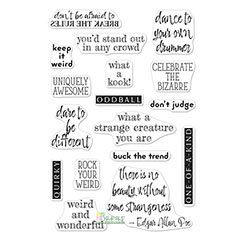 don't be afraid to
BREAK THE RULES
dance to
your own
drummer
you'd stand out
in any crowd
keep
it
weird
what
a
kook!
CELEBRATE
THE
BIZARRE
UNIQUELY
AWESOME
ODDBALL
don't judge
dare to
be
different
what a
strange creature
you are
buck the trend
QUIRKY
ROCK
YOUR
WEIRD
there is no
beauty without
some strangeness
- Edgar Allan Poe
ONE-OF-A-KIND
weird
and
wonderful